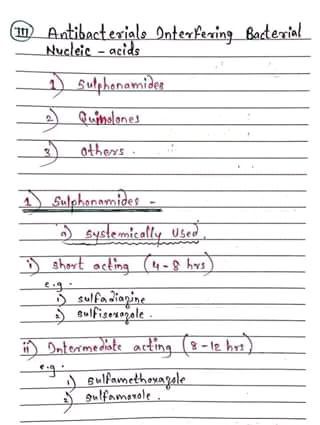 III Antibacterials Interfering Bacterial
Nucleic - acids
1) Sulphonamides
2) Quinolones
3) Others.
1) Sulphonamides -
a) systemically used.
i) short acting (4-8 hrs)
e.g.
1) sulfadiazine
2) sulfisoxazole.
ii) Intermediate acting (8-12 hrs)
e.g.
1) sulfamethoxazole
2) sulfamoxole.